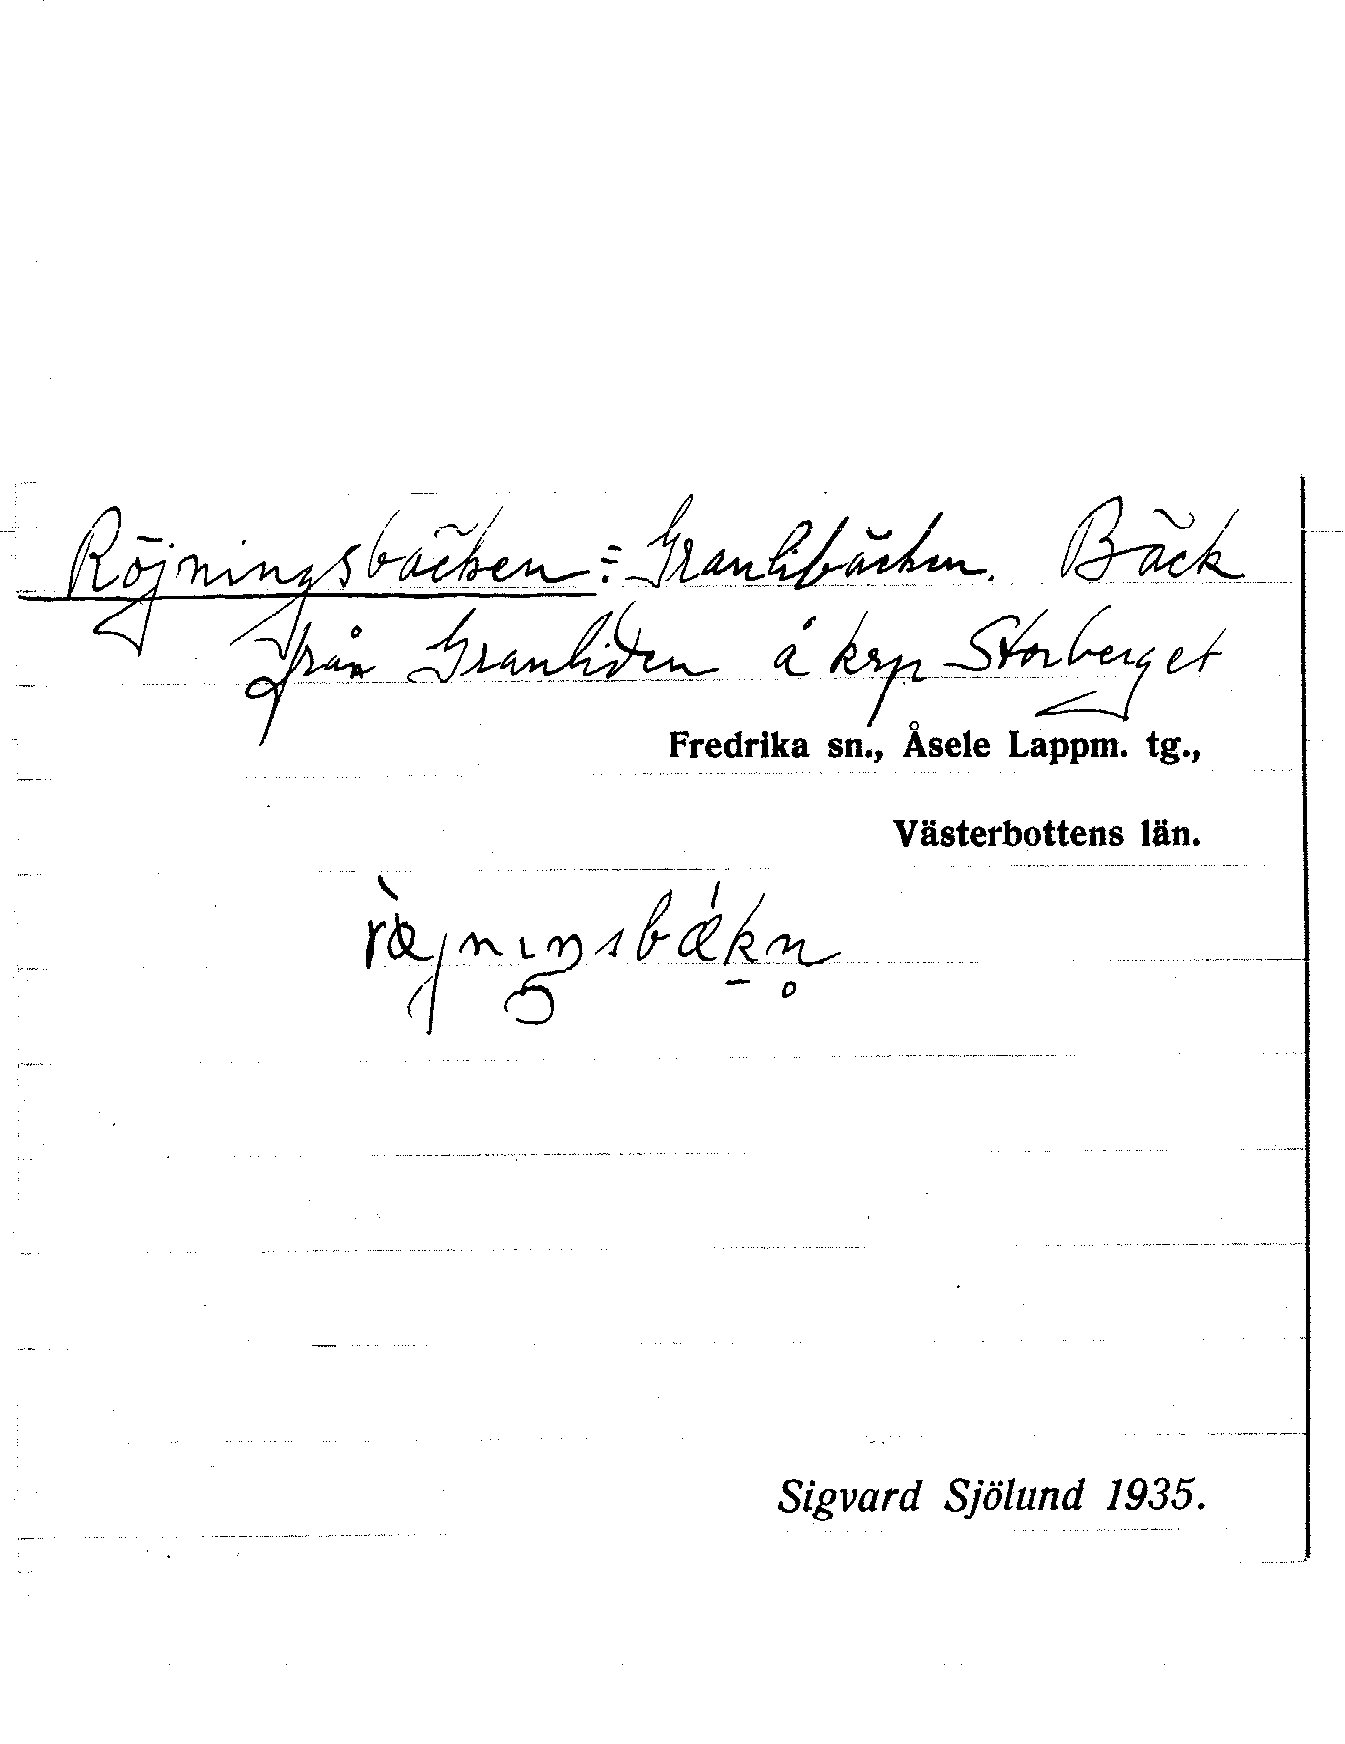 Röjningsbäcken = Granlibäcken. Bäck
från Granliden å krp Storberget
Fredrika sn., Åsele Lappm. tg.,
Västerbottens län.
ræ̀jnıŋsbǽk̠n̥
Sigvard Sjölund 1935.